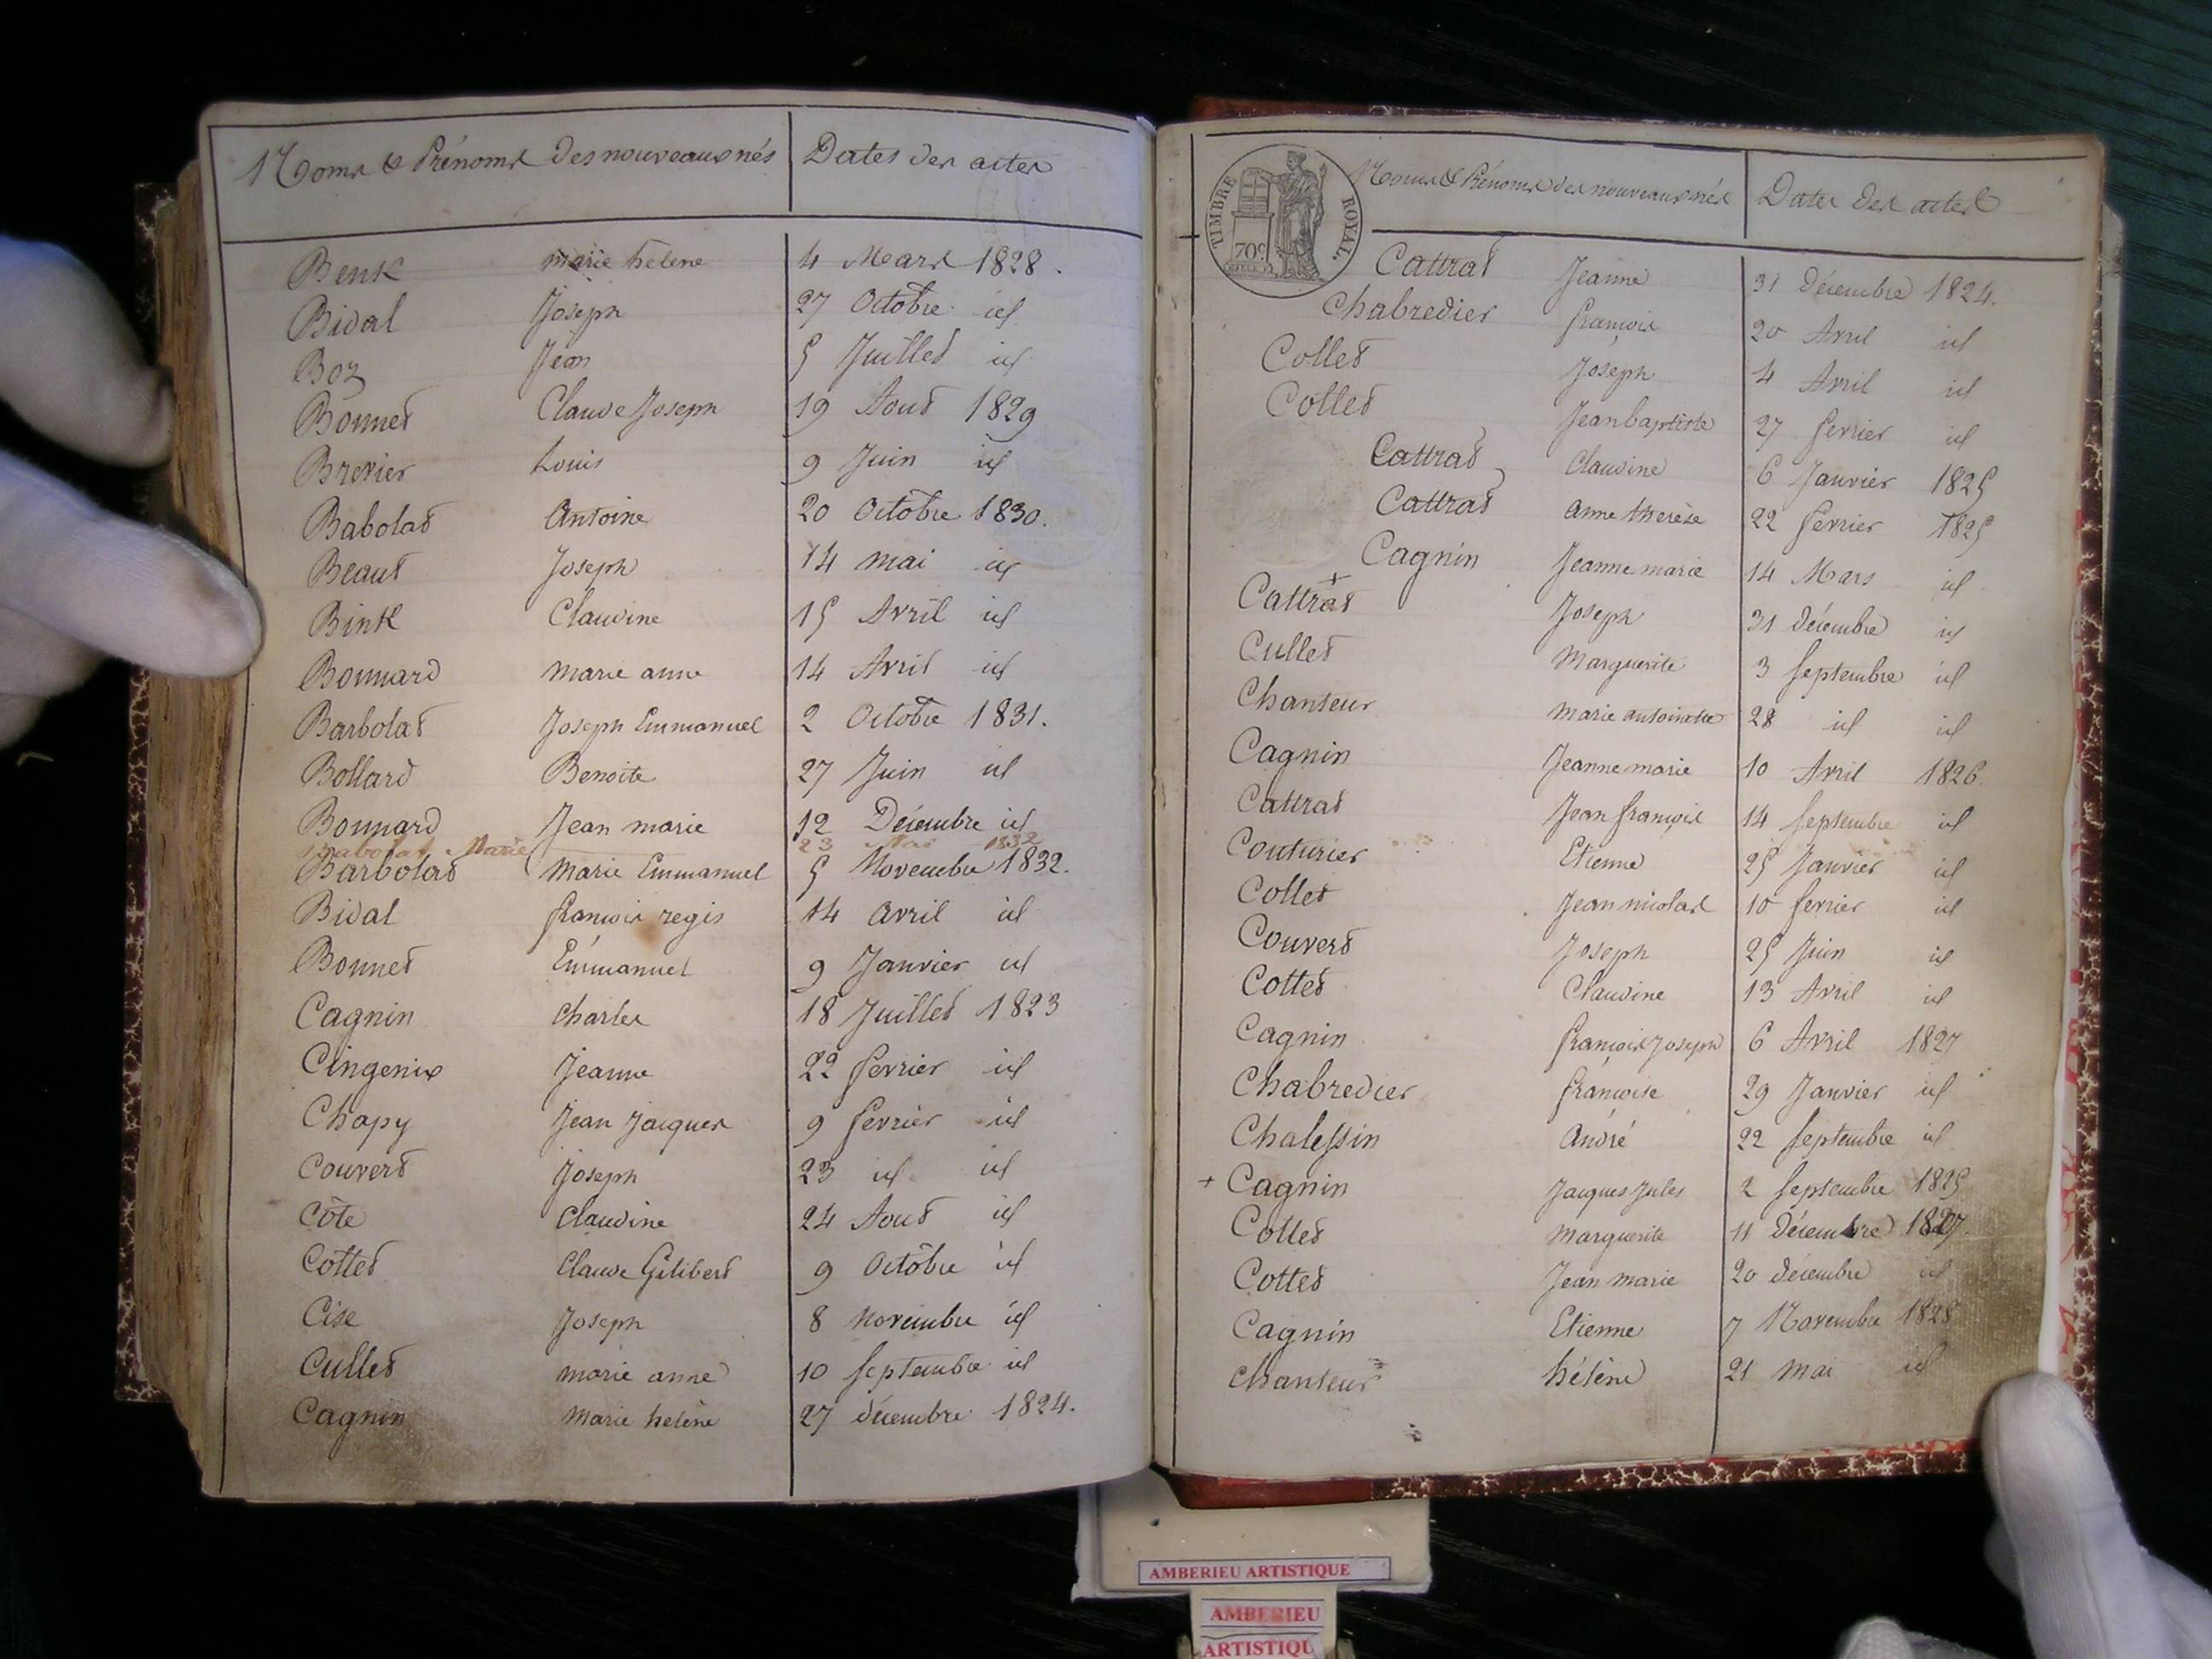 Noms & Prénoms des nouveaux nés Dates des actes
Benk marie helene 4 Mars 1828.
Bidal Joseph 27 Octobre id
Boz Jean 5 Juillet id
Bonnet Claude Joseph 19 Aout 1829
Brevier Louis 9 Juin id
Babolat Antoine 20 Octobre 1830.
Beaut Joseph 14 mai id
Bink Claudine 15 Avril id
Bonnard marie anne 14 Avril id
Barbolat Joseph Emmanuel 2 Octobre 1831.
Bollard Benoite 27 Juin id
Bonnard Jean marie 12 Décembre id
Babolat Marie 23 Mai 1832
Barbolat Marie Emmanuel 5 Novembre 1832.
Bidal francois regis 14 avril id
Bonnet Emmanuel 9 Janvier id
Cagnin Charles 18 Juillet 1823
Cingenix Jeanne 22 fevrier id
Chapy Jean Jacques 9 fevrier id
Couvert Joseph 23 id id
Côte Claudine 24 Aout id
Cottet Claude Gilibert 9 Octobre id
Cise Joseph 8 Novembre id
Cullet marie anne 10 Septembre id
Cagnin Marie heléne 27 décembre 1824.
TIMBRE ROYAL
70c.
Noms & Prénoms des nouveaux nés Dates des actes
Cattrat Jeanne 31 Décembre 1824.
Chabredier francois 20 Avril id
Collet Joseph 4 Avril id
Collet Jean baptiste 27 fevrier id
Cattrat Claudine 6 Janvier 1825
Cattrat anne therèse 22 fevrier 1825
Cagnin Jeanne marie 14 Mars id
Cattrat + Joseph 31 décembre id
Cullet Marguerite 3 Septembre id
Chanteur Marie antoinette 28 id id
Cagnin Jeanne marie 10 Avril 1826.
Cattrat Jean françois 14 Septembre id
Couturier Etienne 25 Janvier id
Collet Jean nicolas 10 fevrier id
Couvert Joseph 25 Juin id
Cottet Claudine 13 Avril id
Cagnin françois Joseph 6 Avril 1827
Chabredier françoise 29 Janvier id
Chalessin André 22 Septembre id
+ Cagnin Jacques Jules 2 Septembre 1825
Collet Marguerite 11 Décembre 1827.
Cottet Jean marie 20 décembre id
Cagnin Etienne 7 Novembre 1828
Chanteur hélène 21 Mai id
AMBERIEU ARTISTIQUE
AMBERIEU
ARTISTIQU